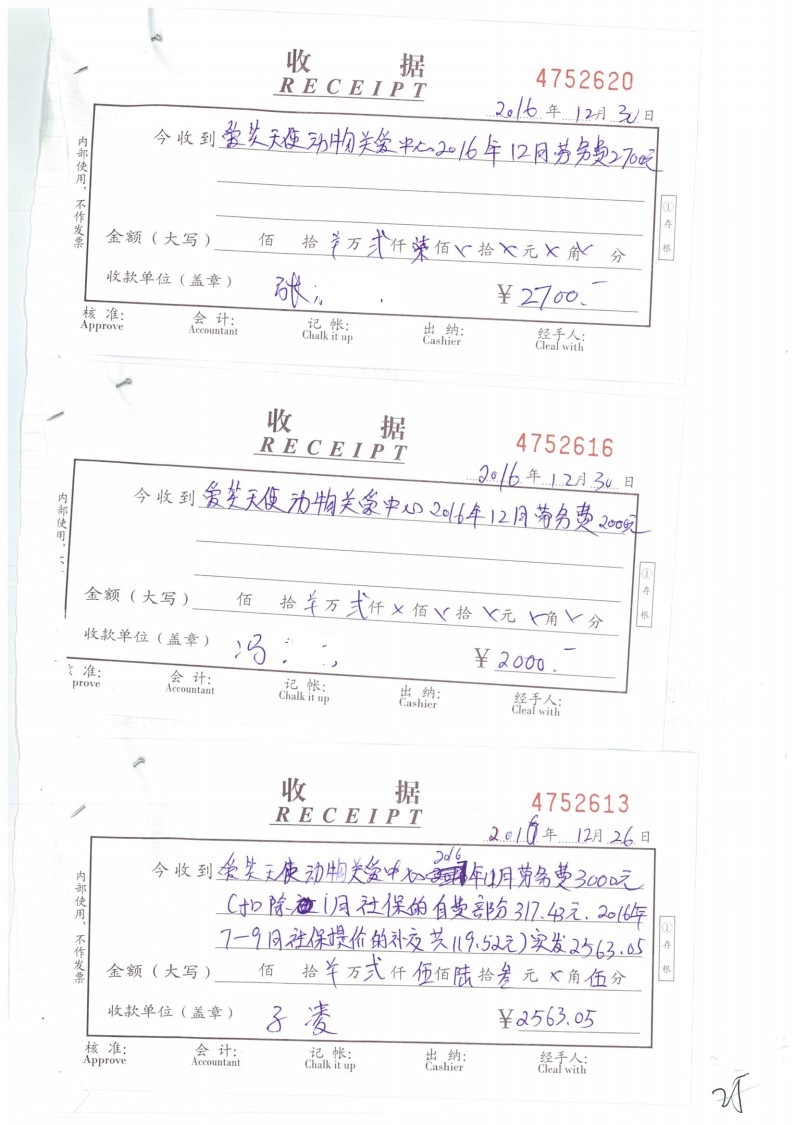 收 据
RECEIPT
4752620
2016 年 12 月 30 日
今收到 爱芺天使动物关爱中心2016年12月劳务费2700元
金额（大写） 佰 拾 半 万 弍 仟 柒 佰 × 拾 × 元 × 角 × 分
收款单位（盖章） 张 ¥ 2700.-
核 准: 会 计: 记 帐: 出 纳: 经手人:
Approve Accountant Chalk it up Cashier Cleal with
内部使用，不作发票
①存根
收 据
RECEIPT
4752616
2016 年 12 月 30 日
今收到 爱芺天使动物关爱中心2016年12月劳务费2000元
金额（大写） 佰 拾 半 万 弍 仟 × 佰 × 拾 × 元 × 角 × 分
收款单位（盖章） 冯 ¥ 2000.-
准: 会 计: 记 帐: 出 纳: 经手人:
prove Accountant Chalk it up Cashier Cleal with
内部使用，
①存根
收 据
RECEIPT
4752613
2016 年 12 月 26 日
今收到 爱芺天使动物关爱中心2016年11月劳务费3000元
(扣除11月社保的自费部分317.43元. 2016年
7-9月社保提价的补交共119.52元)实发2563.05
金额（大写） 佰 拾 半 万 弍 仟 伍 佰 陆 拾 叁 元 × 角 伍 分
收款单位（盖章） 子凌 ¥2563.05
核 准: 会 计: 记 帐: 出 纳: 经手人:
Approve Accountant Chalk it up Cashier Cleal with
内部使用，不作发票
①存根